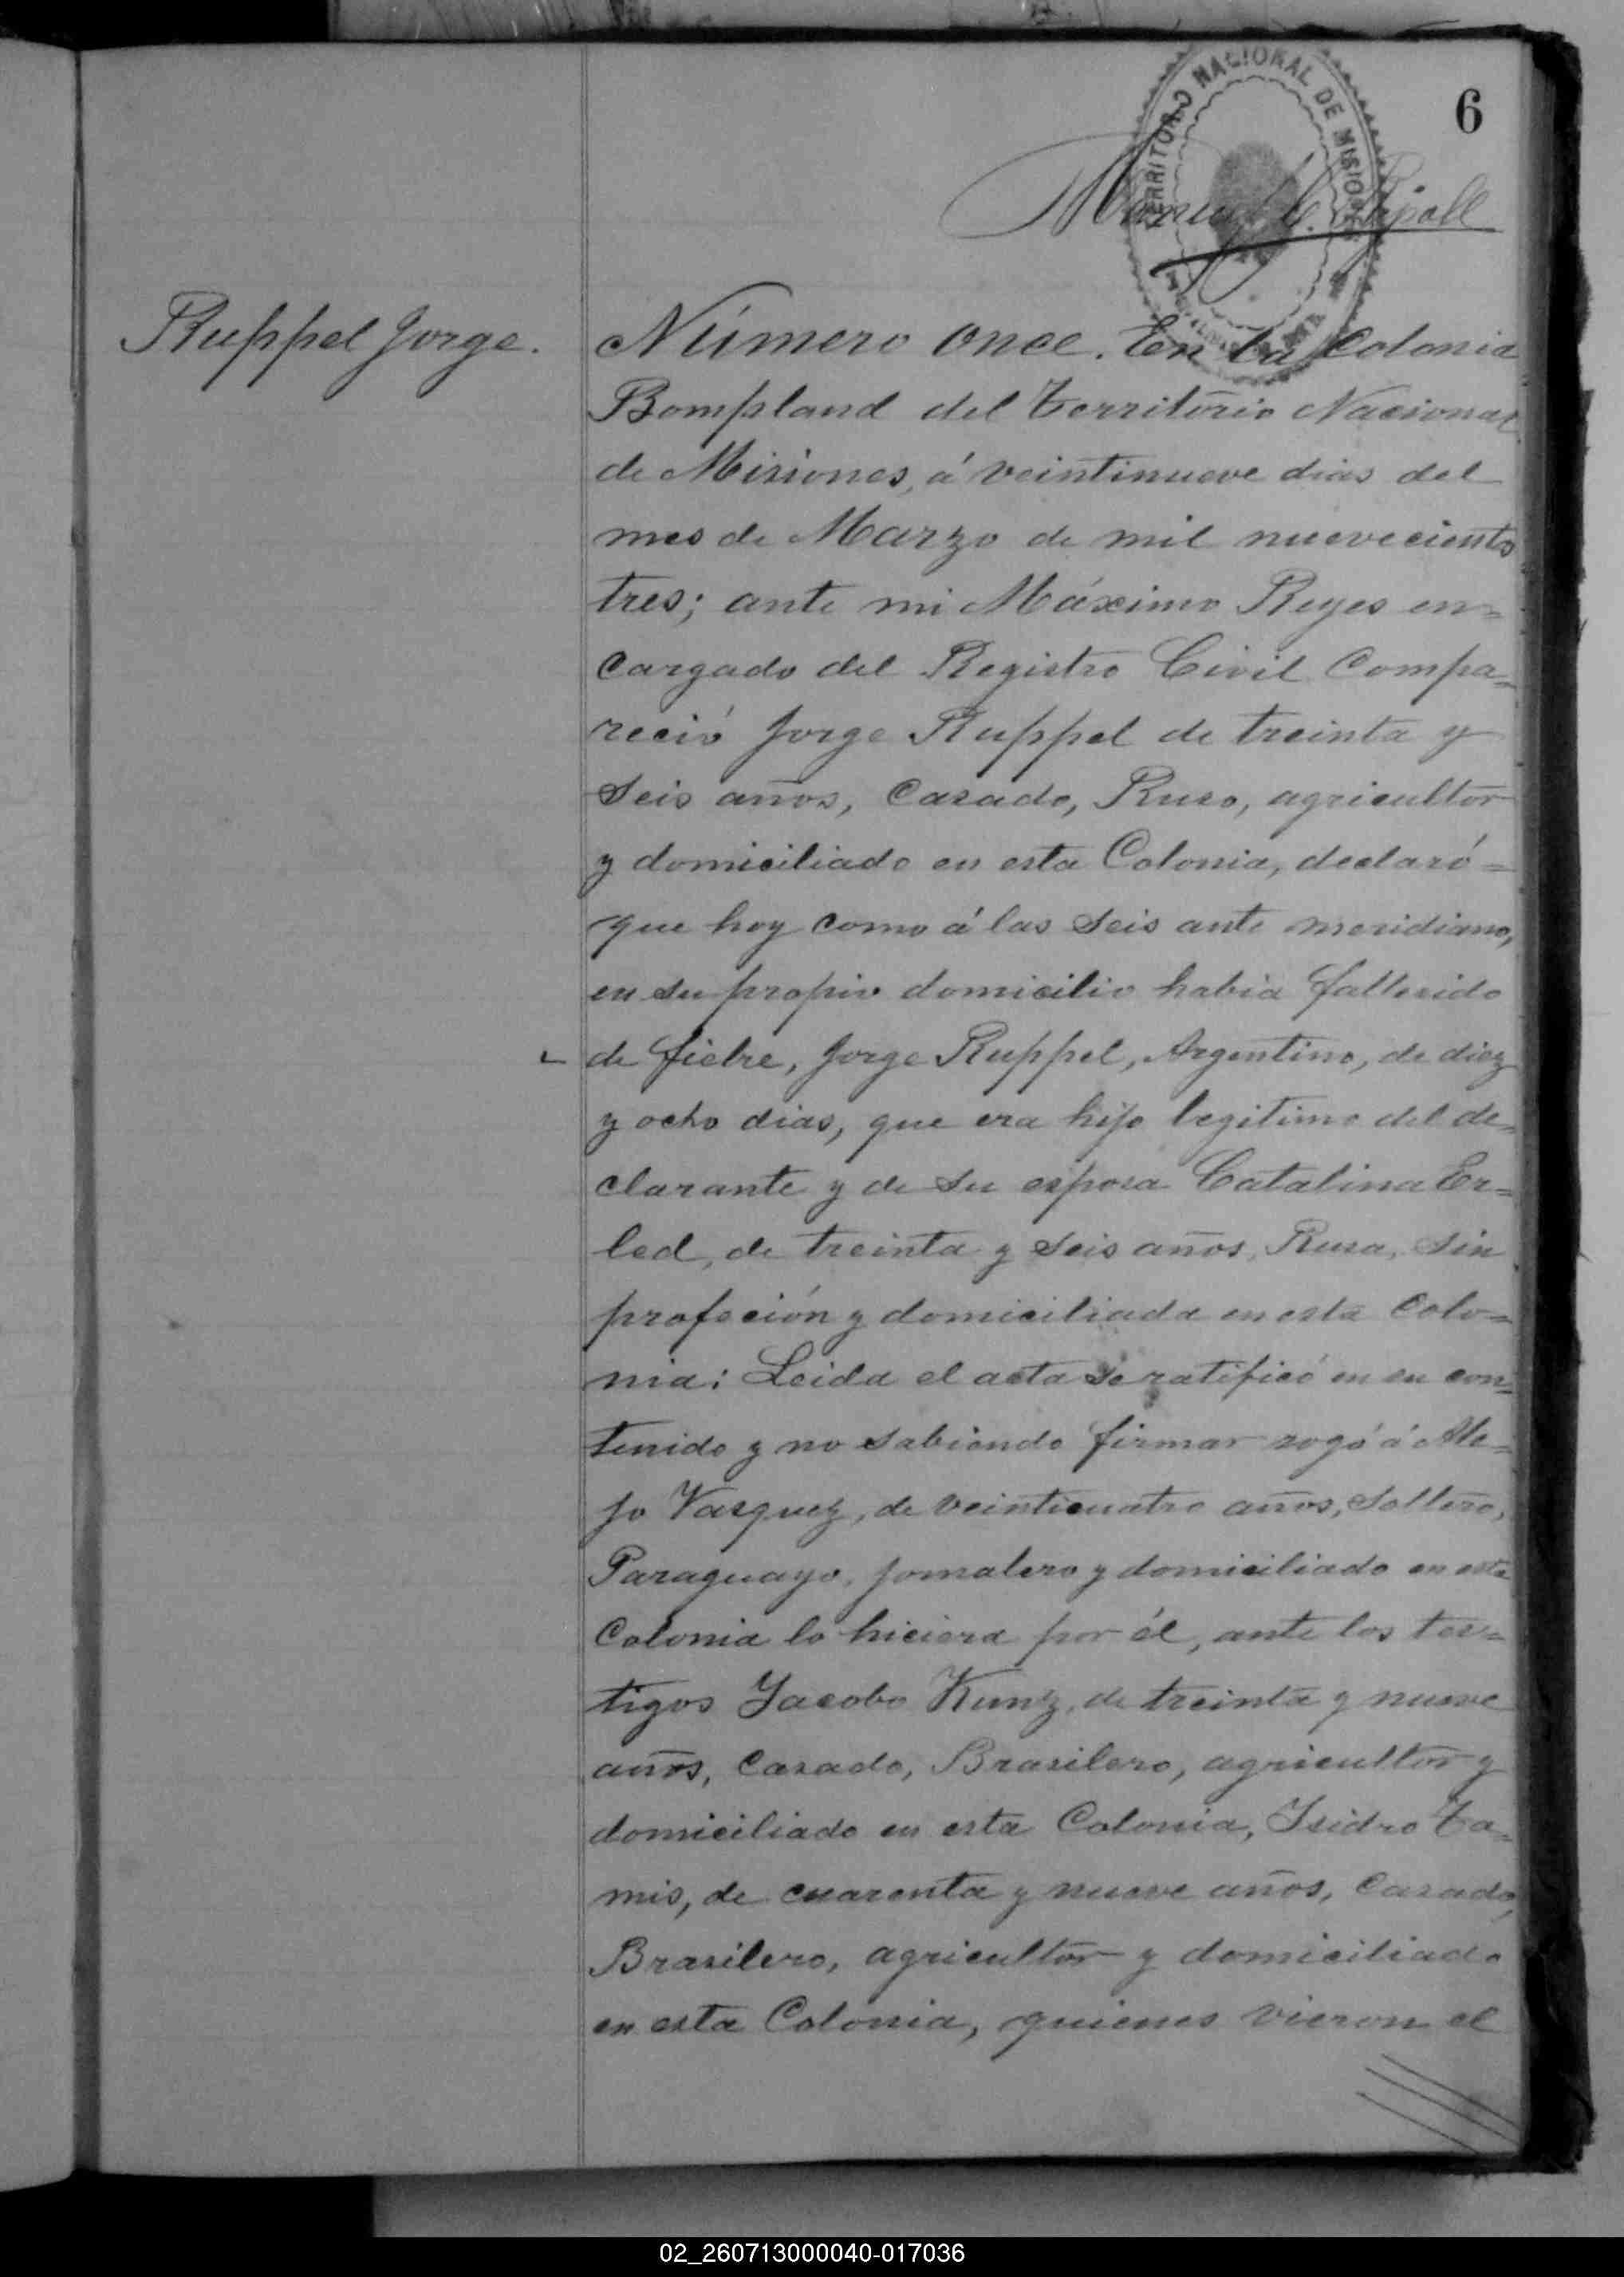 6
TERRITORIO NACIONAL DE MISIONES
Ruppel Jorge.
Número once. En la Colonia
Bompland del Territorio Nacional
de Misiones, á veintinueve dias del
mes de Marzo de mil nuevecientos
tres; ante mi Máximo Reyes en=
cargado del Registro Civil Compa=
reció Jorge Ruppel de treinta y
seis años, Casado, Ruso, agricultor
y domiciliado en esta Colonia, declaró=
que hoy como á las seis ante meridiano,
en su propio domicilio habia fallecido
de fiebre, Jorge Ruppel, Argentino, de diez
y ocho dias, que era hijo legitimo del de=
clarante y de su esposa Catalina Er=
led, de treinta y seis años, Rusa, sin
profeción y domiciliada en esta Colo=
nia: Leida el acta se ratificó en su con=
tenido y no sabiendo firmar rogó á Ale=
jo Vasquez, de veinticuatro años, soltero,
Paraguayo, jornalero y domiciliado en esta
Colonia lo hiciera por él, ante los tes=
tigos Jacobo Kunz, de treinta y nueve
años, Casado, Brasilero, agricultor y
domiciliado en esta Colonia, Isidro Ta=
mis, de cuarenta y nueve años, Casado,
Brasilero, agricultor y domiciliado
en esta Colonia, quienes vieron el
02_260713000040-017036